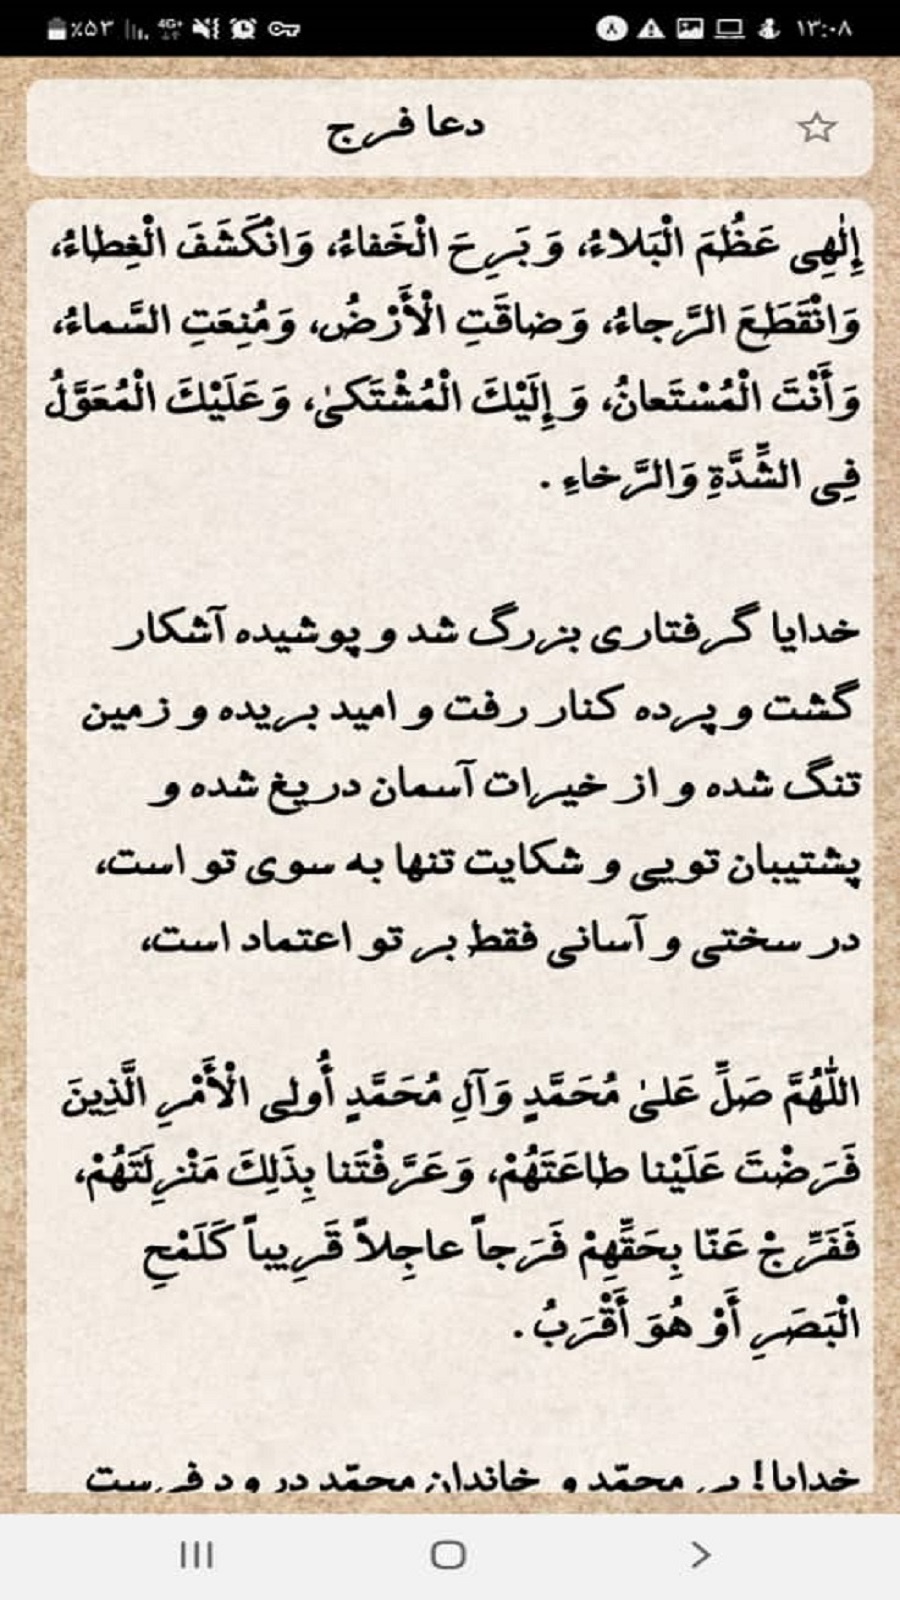 ٪۵۳ 4G+ ۱۳:۰۸
دعا فرج
إِلٰهِی عَظُمَ الْبَلاءُ، وَ بَرِحَ الْخَفاءُ، وَانْكَشَفَ الْغِطاءُ،
وَانْقَطَعَ الرَّجاءُ، وَضاقَتِ الْأَرْضُ، وَمُنِعَتِ السَّماءُ،
وَأَنْتَ الْمُسْتَعانُ، وَ إِلَيْكَ الْمُشْتَكىٰ، وَعَلَيْكَ الْمُعَوَّلُ
فِی الشِّدَّةِ وَالرَّخاءِ .
خدایا گرفتاری بزرگ شد و پوشیده آشکار
گشت و پرده کنار رفت و امید بریده و زمین
تنگ شده و از خیرات آسمان دریغ شده و
پشتیبان تویی و شکایت تنها به سوی تو است،
در سختی و آسانی فقط بر تو اعتماد است،
اللّٰهُمَّ صَلِّ عَلىٰ مُحَمَّدٍ وَآلِ مُحَمَّدٍ أُولِی الْأَمْرِ الَّذِينَ
فَرَضْتَ عَلَيْنا طاعَتَهُمْ، وَعَرَّفْتَنا بِذَلِكَ مَنْزِلَتَهُمْ،
فَفَرِّجْ عَنّا بِحَقِّهِمْ فَرَجاً عاجِلاً قَرِيباً كَلَمْحِ
الْبَصَرِ أَوْ هُوَ أَقْرَبُ .
خدایا! بر محمّد و خاندان محمّد درود فرست